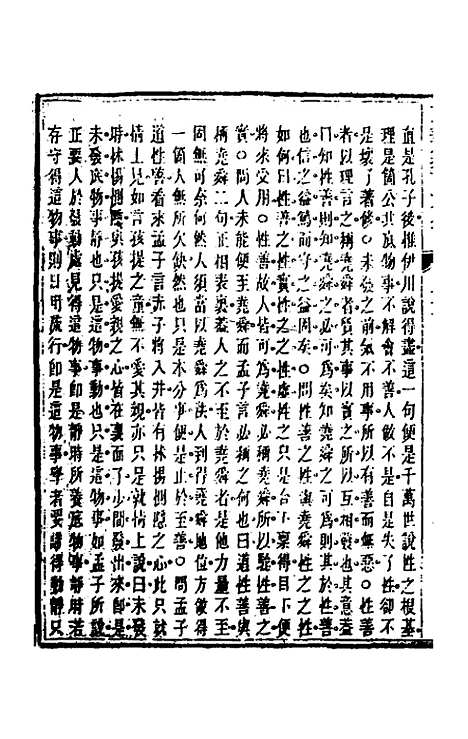 直是孔子後惟伊川說得盡這一句便是千萬世說性之根基
理是箇公共底物事不解會不善人做不是自是失了性却不
是壞了著修○未發之前氣不用事所以有善而無惡○性善
者以理言之稱堯舜者質其事以實之所以互相發也其意蓋
曰知性善則知堯舜之必可爲矣知堯舜之可爲則其於性善
也信之益篤而守之益固矣○問性善之性與堯舜性之之性
如何曰性善之性實性之之性虛性之只是合下稟得目下便
將來受用○性善故人皆可爲堯舜必稱堯舜所以驗性善之
實○問人未能便至堯舜而孟子言必稱之何也曰道性善與
稱堯舜二句正相表裏蓋人之不至於堯舜者是他力量不至
固無可奈何然人須當以堯舜爲法人到得堯舜地位方做得
一箇人無所欠缺然也只是本分事便是止於至善○問孟子
道性善看來孟子言赤子將入井皆有怵惕惻隱之心此只就
情上見如言孩提之童無不愛其親亦只是就情上說曰未發
時怵惕惻隱與孩提愛親之心皆在裏面了少間發出來即是
未發底物事靜也只是這物事動也只是這物事如孟子所說
正要人於發動處見得是這物事即是靜時所養底物事靜時若
存守得這物事則日用流行即是這物事學者要識得動靜只